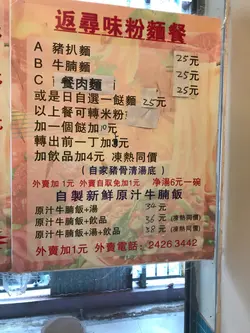 返尋味粉麵餐
A 豬扒麵 25元
B 牛腩麵 25元
C 餐肉麵 25元
或是日自選一餸麵 25元
以上餐可轉米粉
加一個餸加10元
轉出前一丁加3元
加飲品加4元 凍熱同價
(自家豬骨清湯底)
外賣加1元 外賣自取免加1元 净湯6元一碗
自製新鮮原汁牛腩飯
原汁牛腩飯+湯 34元
原汁牛腩飯+飲品 36元(凍熱同價)
原汁牛腩飯+湯+飲品 38元(凍熱同價)
外賣加1元 外賣電話:2426 3442